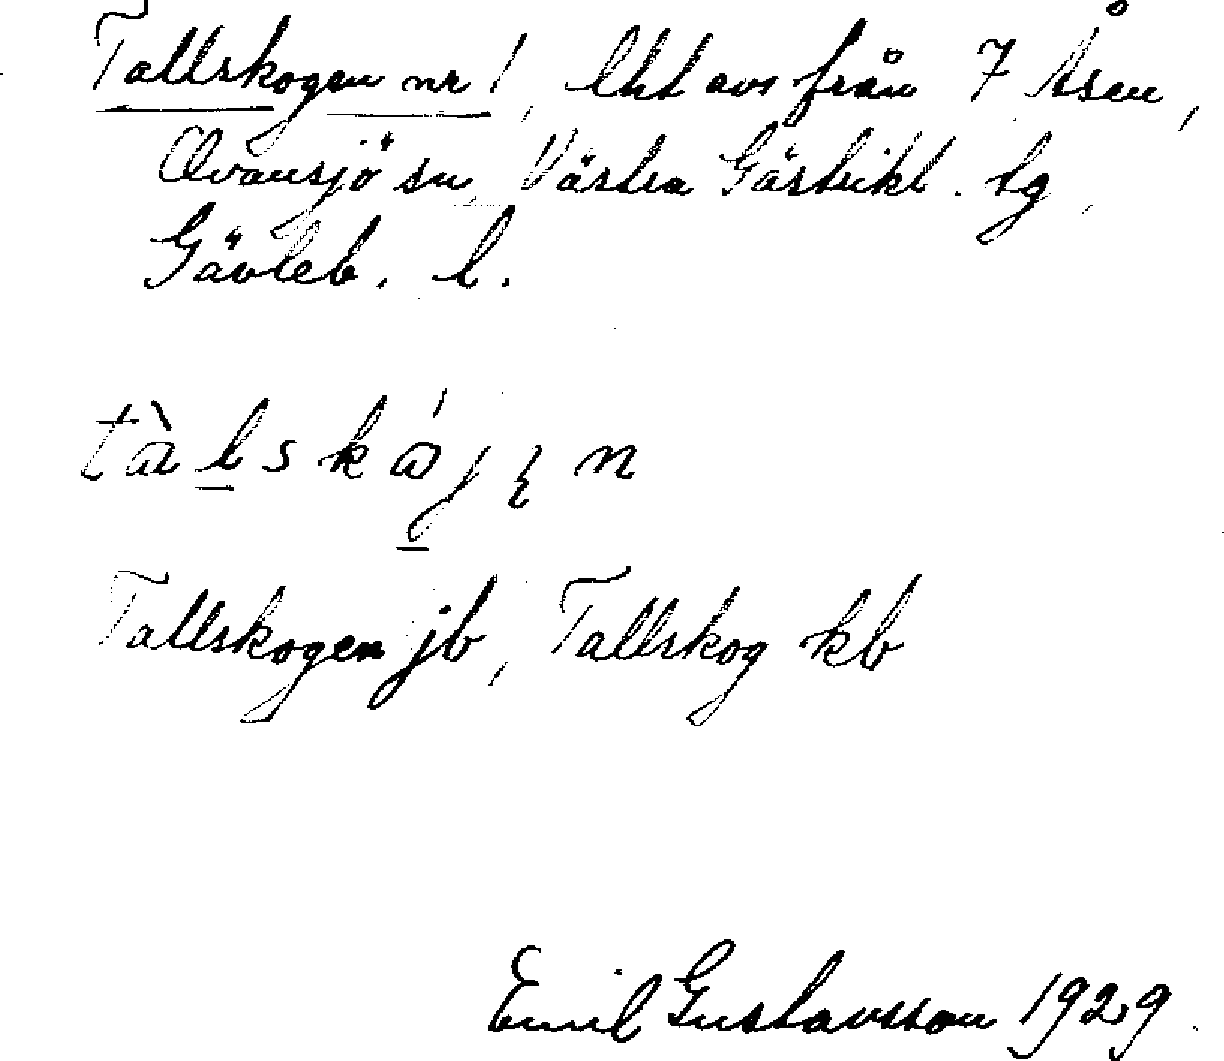 Tallskogen nr 1, lht avs från 7 Åsen,
Ovansjö sn, Västra Gästrikl. tg,
Gävleb. l.
tàlskájęn
Tallskogen jb, Tallskog kb
Emil Gustavsson 1929.